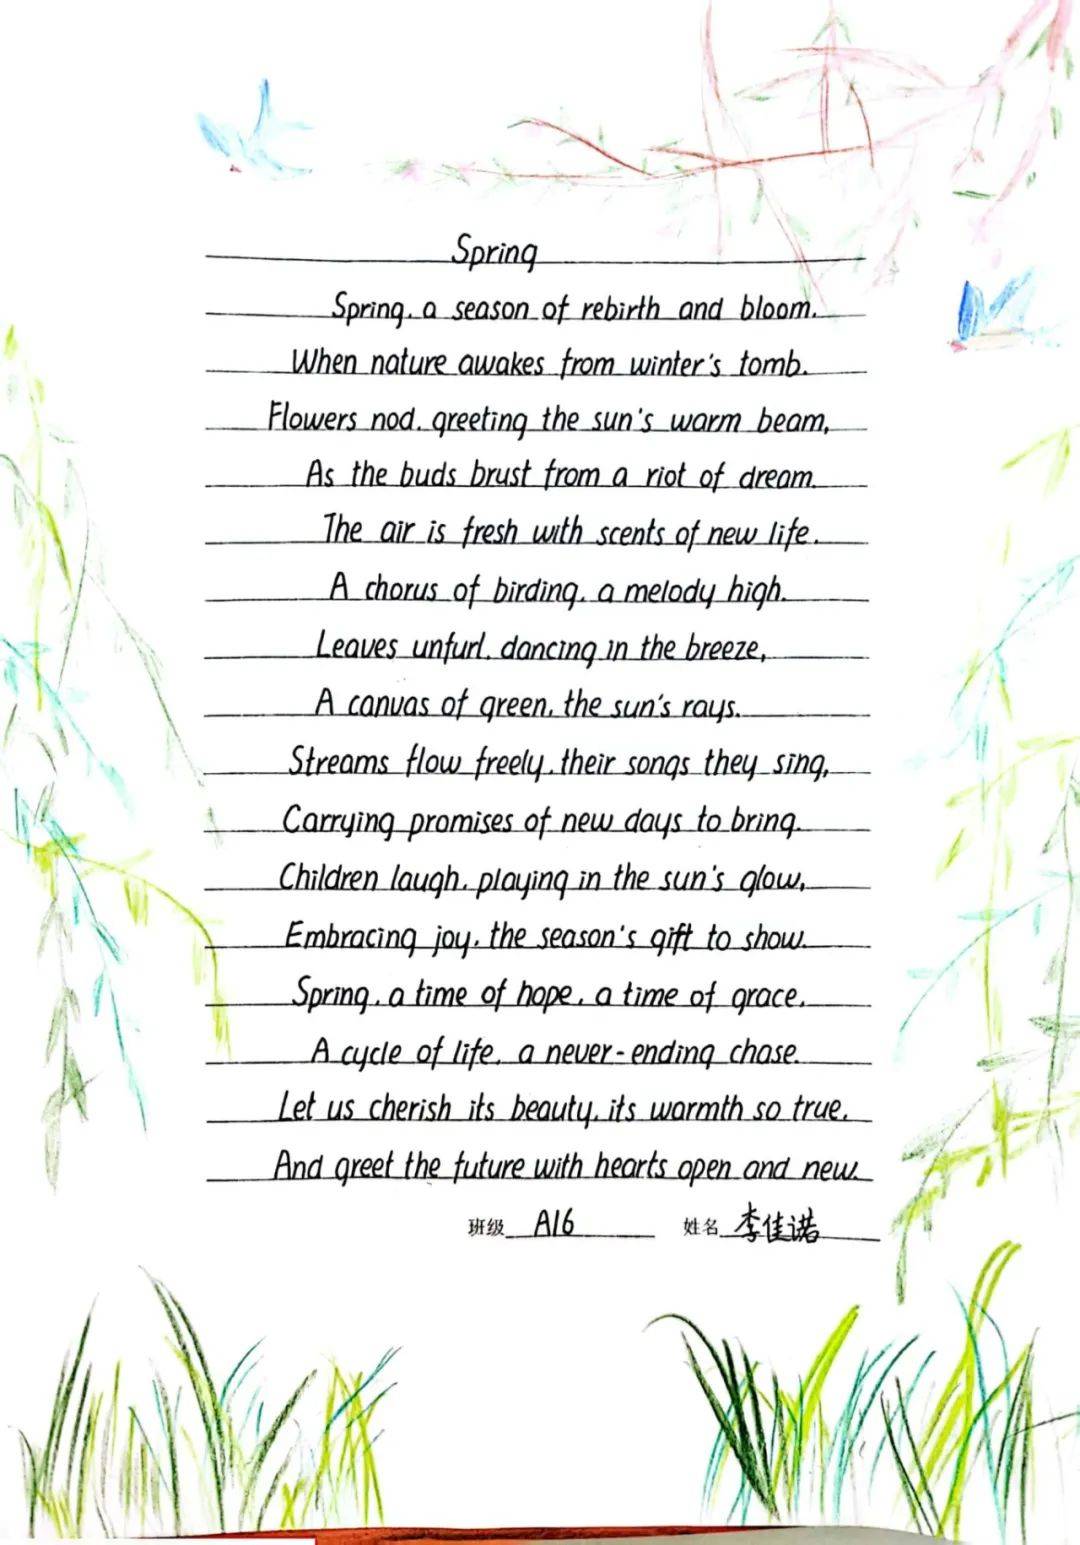 Spring
Spring, a season of rebirth and bloom.
When nature awakes from winter's tomb.
Flowers nod, greeting the sun's warm beam,
As the buds brust from a riot of dream.
The air is fresh with scents of new life.
A chorus of birding, a melody high.
Leaves unfurl, dancing in the breeze,
A canvas of green, the sun's rays.
Streams flow freely, their songs they sing,
Carrying promises of new days to bring.
Children laugh, playing in the sun's glow,
Embracing joy, the season's gift to show.
Spring, a time of hope, a time of grace.
A cycle of life, a never-ending chase.
Let us cherish its beauty, its warmth so true.
And greet the future with hearts open and new.
班级 A16 姓名 李佳诺